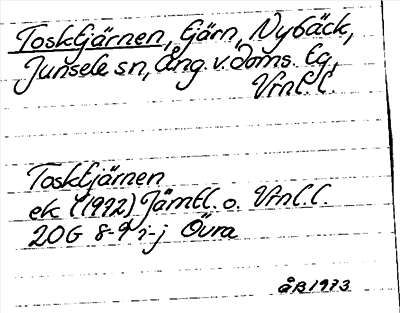 Tosktjärnen, tjärn, Nybäck,
Junsele sn, Ång v. doms. tg,
Vrnl. l.
Tosktjärnen
ek (1972) Jämtl. o. Vrnl. l.
20G 8-9 i-j Övra
ÅB 1973